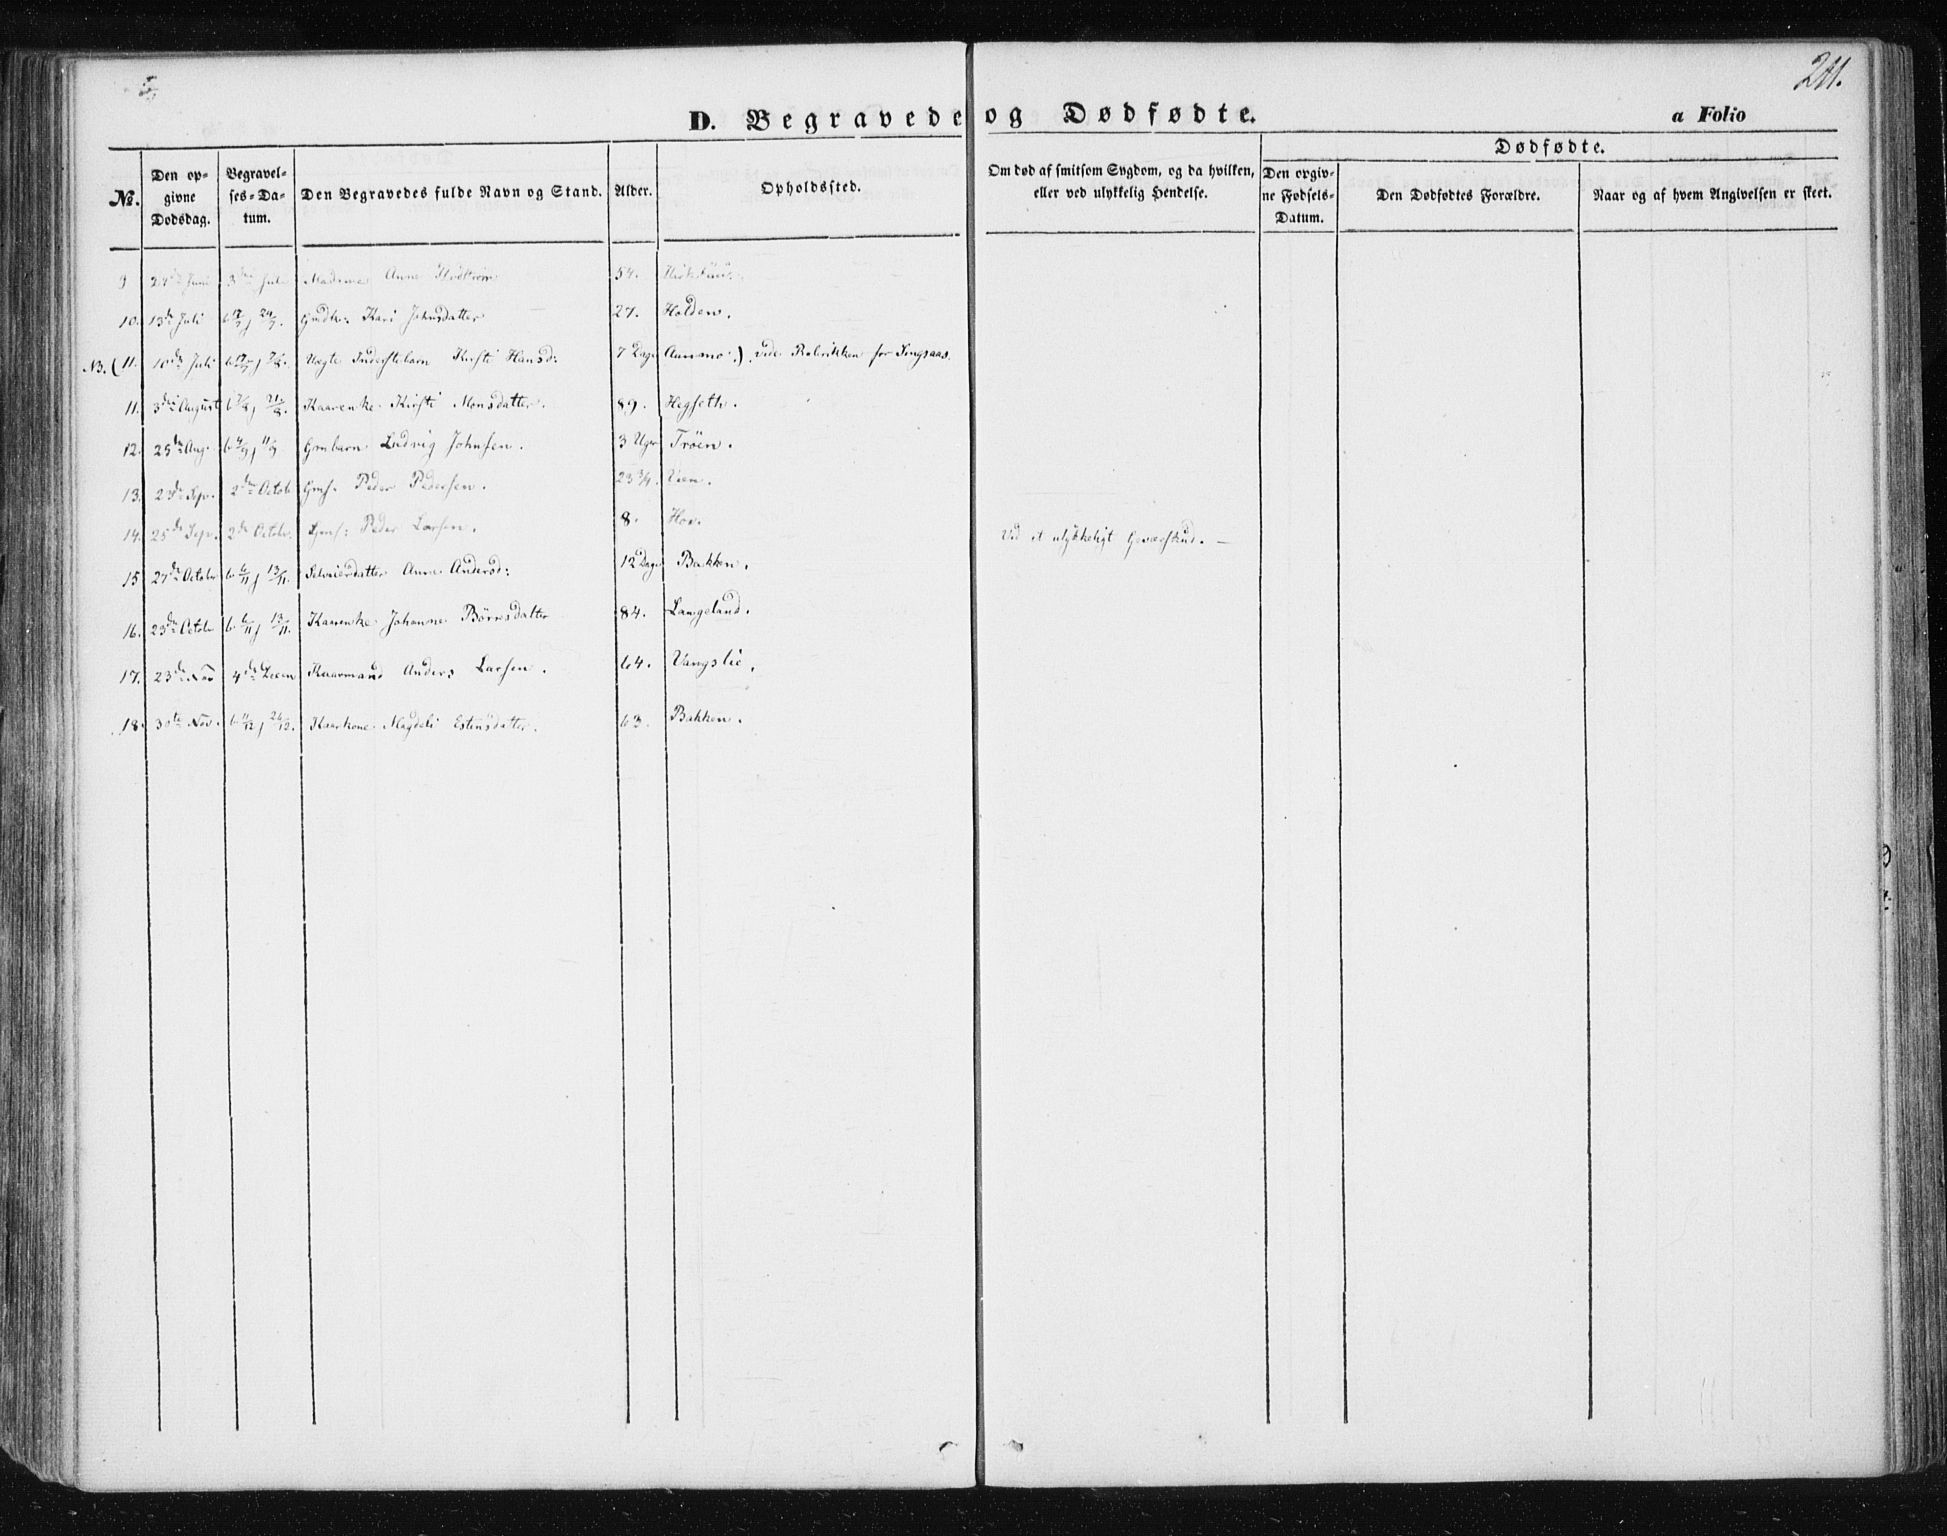 211.
D. Begravede og Dødfødte. a Folio
No. Den opgivne Dødsdag. Begravelses-Datum. Den Begravedes fulde Navn og Stand. Alder. Opholdssted. Om død af smitsom Sygdom, og da hvilken, eller ved ulykkelig Hendelse. Dødfødte.
Den opgivne Fødsels-Datum. Den Dødfødtes Forældre. Naar og af hvem Angivelsen er skeet.
9 Juni 3die Juli Madame Anne 54.
10. 13de Juli Kari Johnsdatter 27. Holden.
NB. (11. 10de Juli Kirsti Hansd: 7 Dage Aunmo.) vide Rubrikken for Singsaas.
11. 3die August b 7/8 j 21/8. Kaarenke Kirsti Monsdatter. 89. Hegseth.
12. 25de Aug. b 4/9 j 11/9 Gmbarn Ludvig Johnsen. 3 Uger Trøen.
13. Sep. 2den Octobr Gms. Peder Pedersen. 23 3/4. Vien.
14. 25de Sep. 2den Octobr. Peder Larsen. 8. Hov. Ved et ulykkeligt Geværskud. —
15 27de October b 6/11 j 13/11. Selveierdatter Anne Andersd: 12 Dage Bakken.
16. 23de Octobr b 6/11 j 13/11. Kaarenke Johanne Börresdatter 84. Langeland.
17. 23de Nov 4de Decem Kaarmand Anders Larsen. 64. Vangslie.
18. 30te Nov. b 11/12 j 26/12. Kaarkone Magdeli Estensdatter. 63. Bakken.